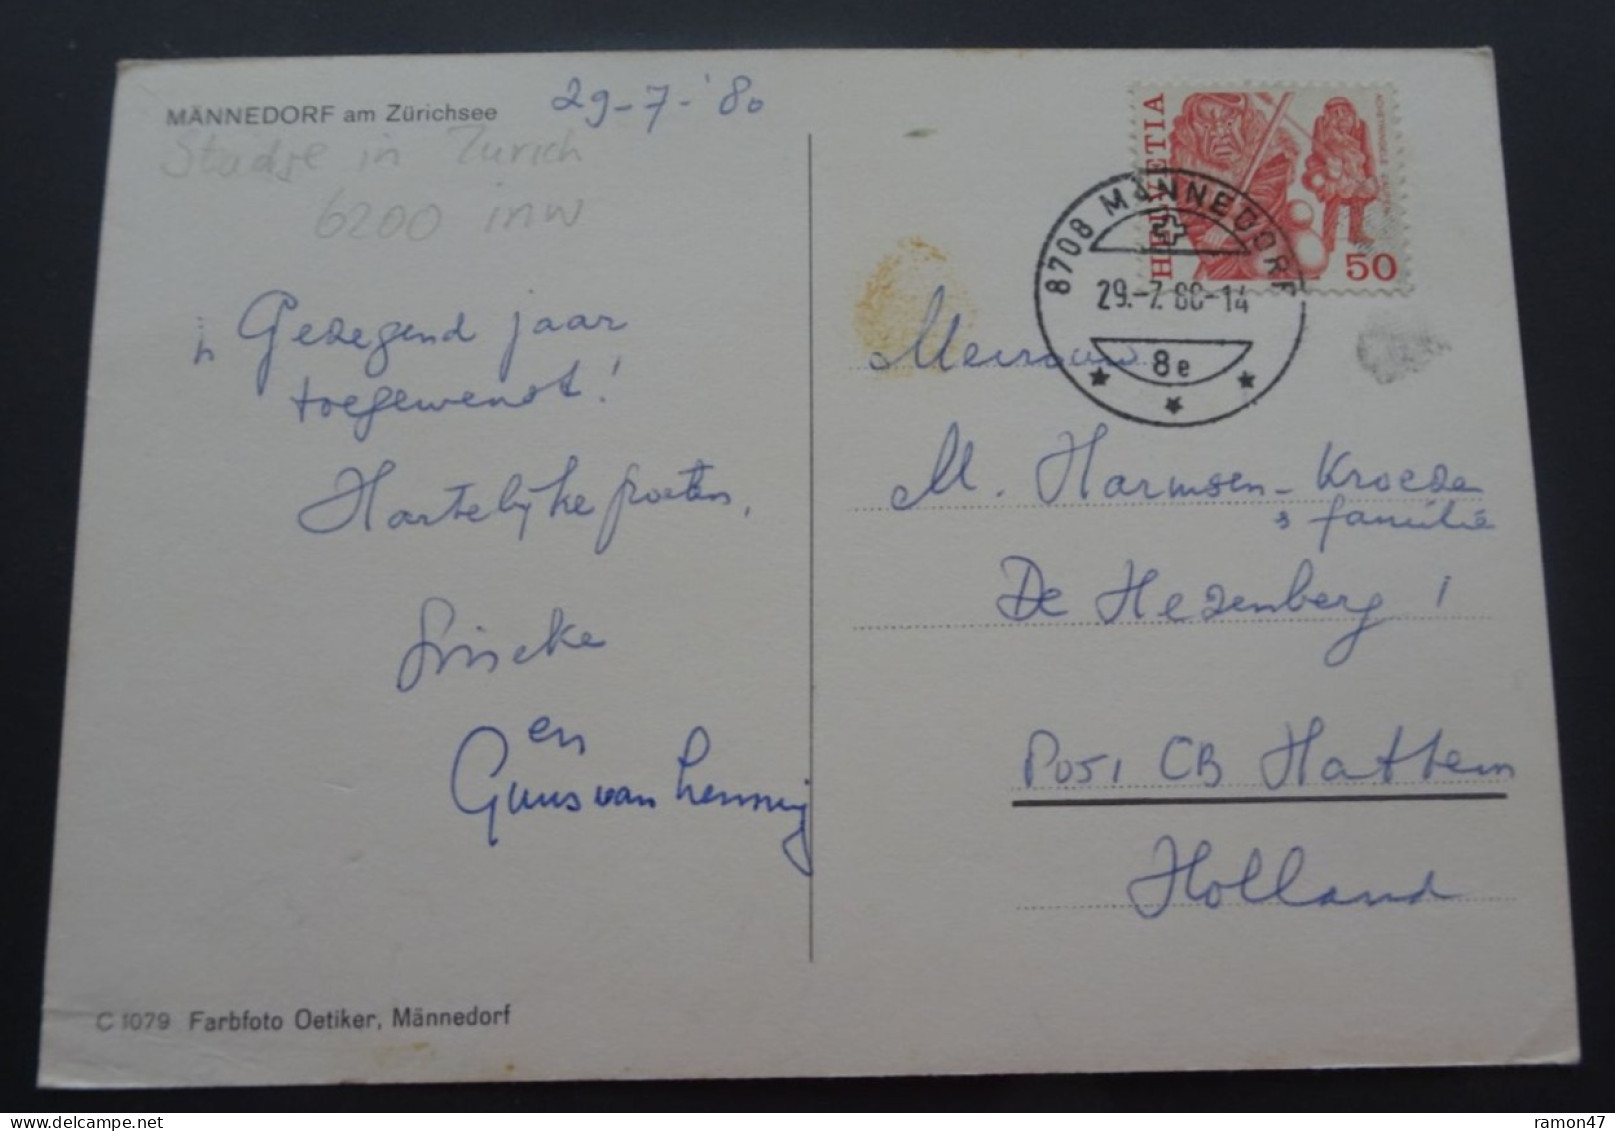 MÄNNEDORF am Zürichsee
29-7-'80
Stadje in Zurich
6200 inw
Gezegend jaar
toegewenst!
Hartelijke groeten,
en
Guus van Lennig
C 1079 Farbfoto Oetiker, Männedorf
HELVETIA
50
8708 MÄNNEDORF
29.-7.80-14
8e
Mevrouw
M. Harmsen-Kroeze
& familie
De Hezenberg 1
8051 CB Hattem
Holland
ramon47